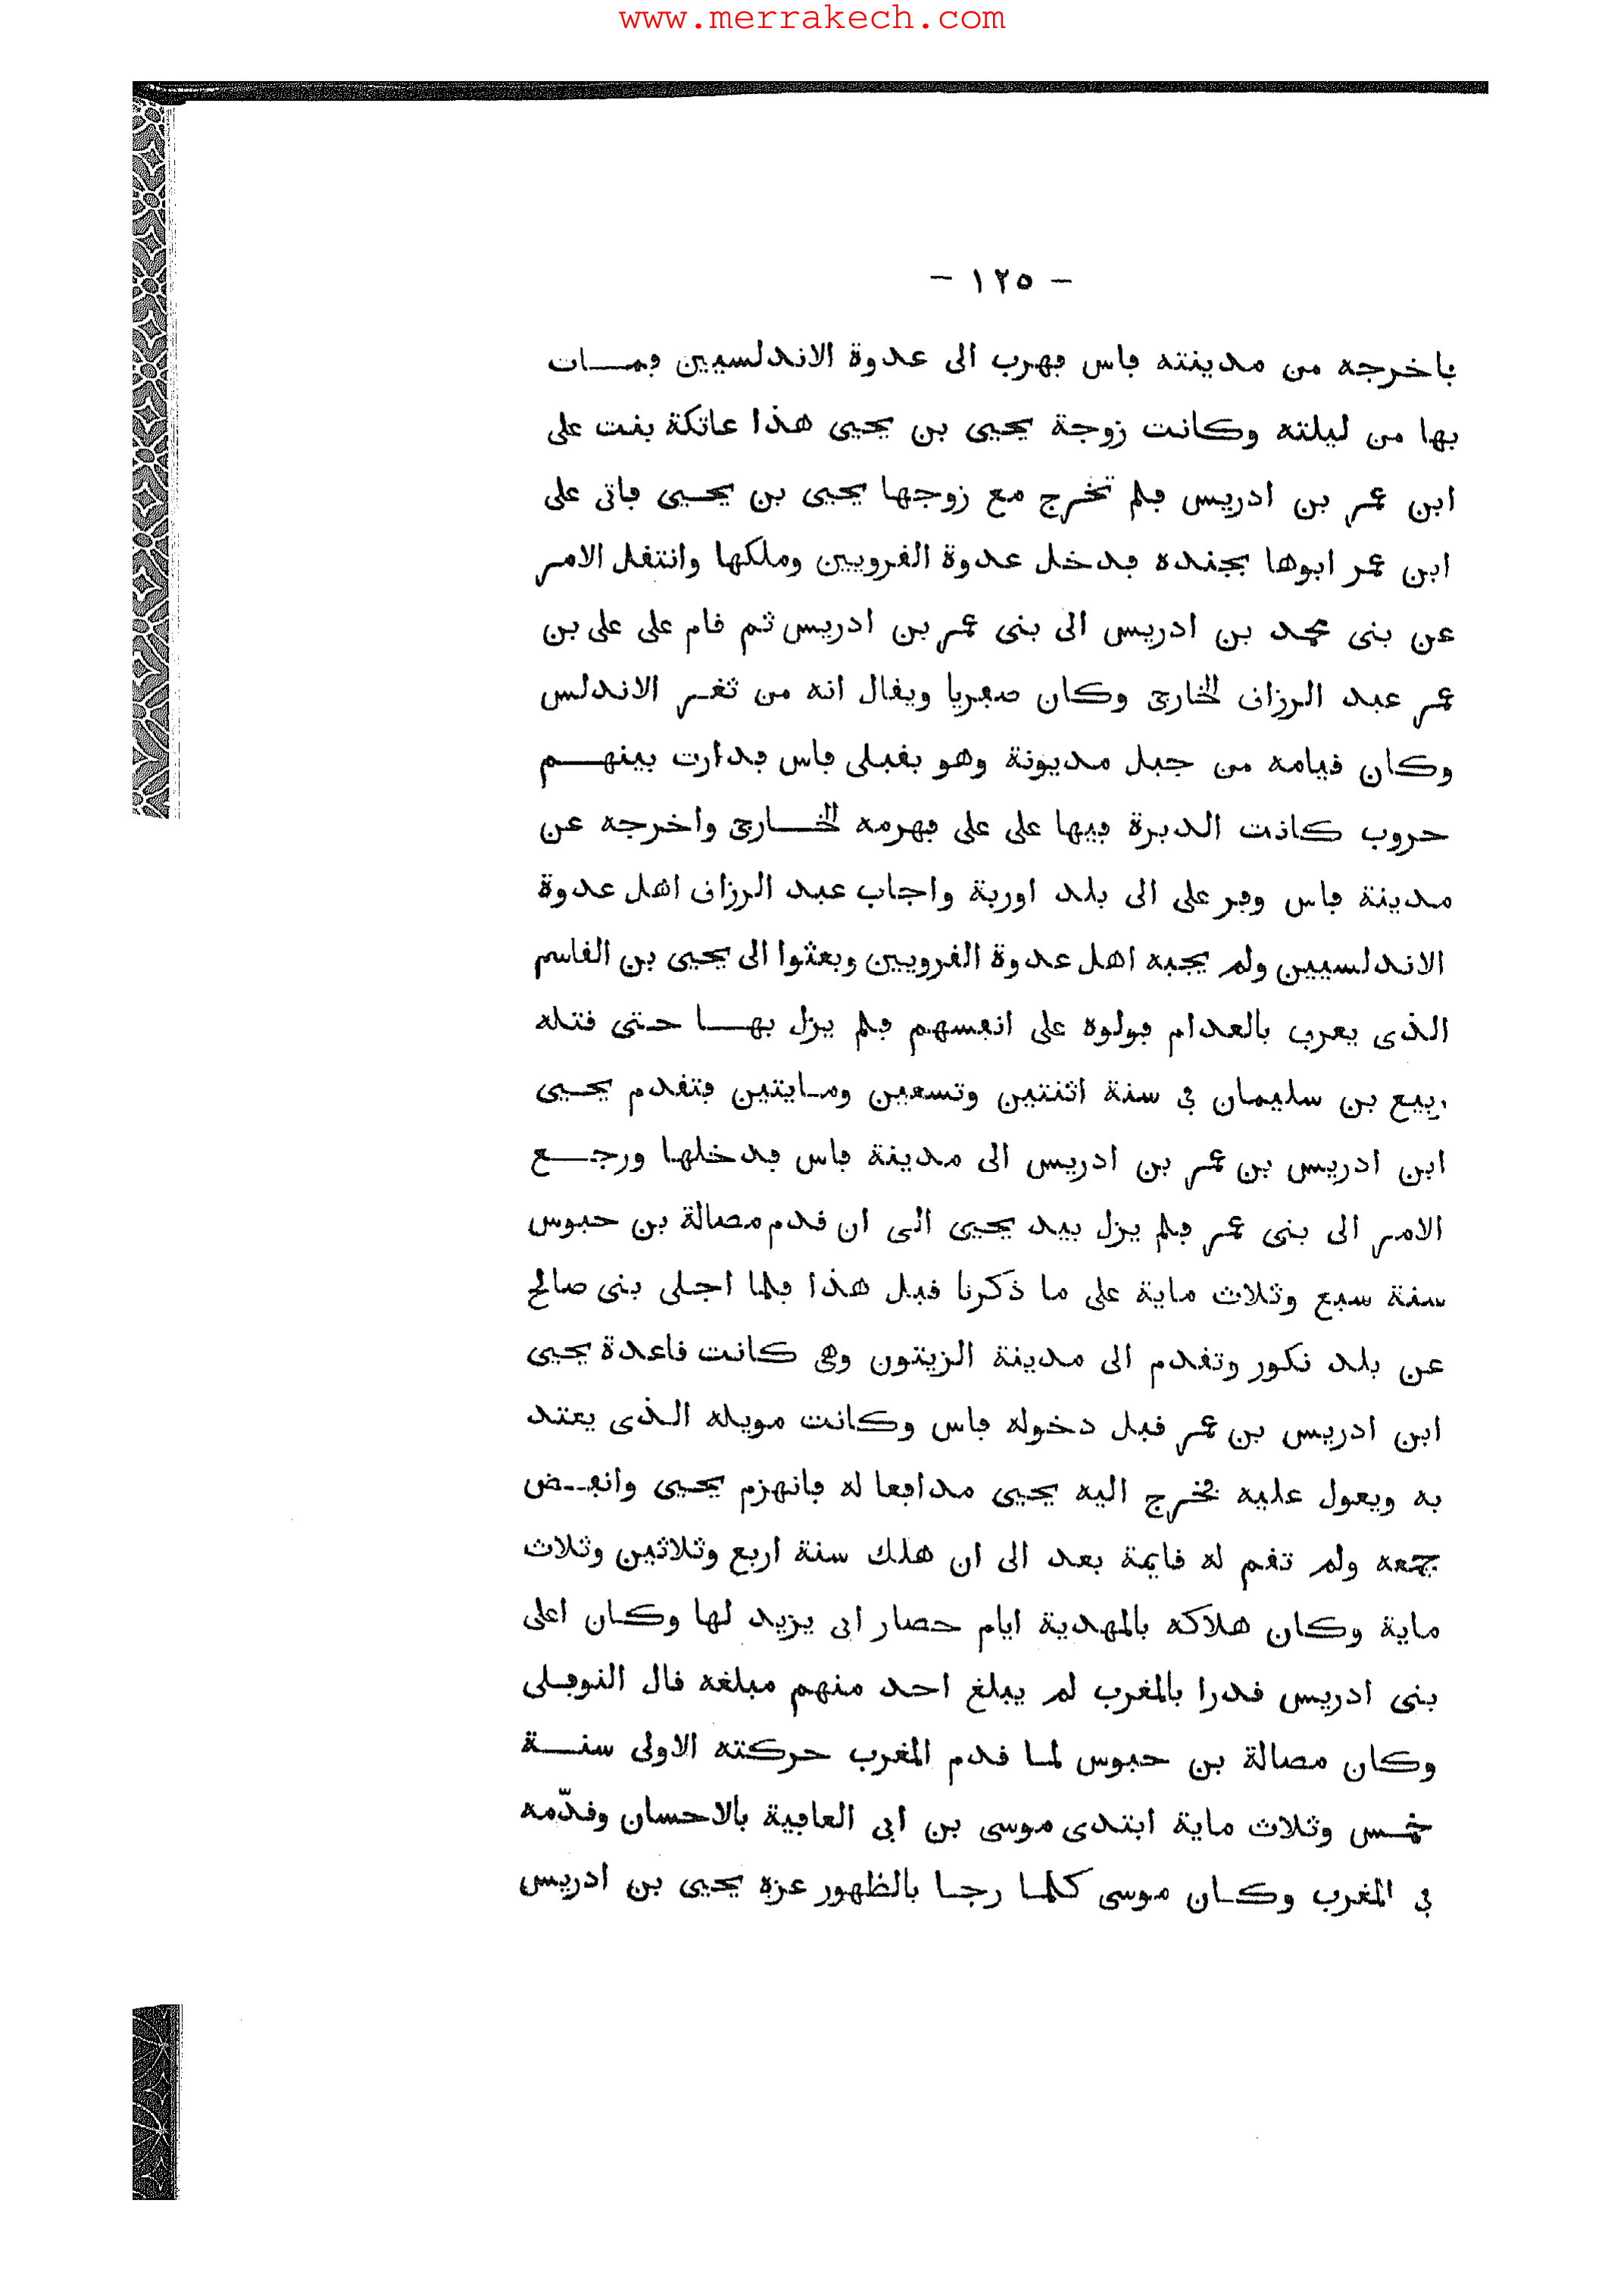 www.merrakech.com
- ١٢٥ -
فاخرجه من مدينته فاس فهرب الى عدوة الاندلسيين فمات
بها من ليلته وكانت زوجة يحيى بن يحيى هذا عاتكة بنت على
ابن عمر بن ادريس فلم تخرج مع زوجها يحيى بن يحيى فاتى على
ابن عمر ابوها بجنده فدخل عدوة القرويين وملكها وانتقل الامر
عن بنى محمد بن ادريس الى بنى عمر بن ادريس ثم قام على على بن
عمر عبد الرزاق الخارجى وكان صفريا ويقال انه من ثغر الاندلس
وكان قيامه من جبل مديونة وهو بقبلى فاس فدارت بينهم
حروب كانت الدبرة فيها على على فهرمه الخارجى واخرجه عن
مدينة فاس وفر على الى بلد اوربة واجاب عبد الرزاق اهل عدوة
الاندلسيين ولم يجبه اهل عدوة القرويين وبعثوا الى يحيى بن القاسم
الذى يعرف بالعدام فولوه على انفسهم فلم يزل بها حتى قتله
ربيع بن سليمان فى سنة اثنتين وتسعين ومايتين فتقدم يحيى
ابن ادريس بن عمر بن ادريس الى مدينة فاس فدخلها ورجع
الامر الى بنى عمر فلم يزل بيد يحيى الى ان قدم مصالة بن حبوس
سنة سبع وثلاث ماية على ما ذكرنا قبل هذا فلما اجلى بنى صالح
عن بلد نكور وتقدم الى مدينة الزيتون وهى كانت قاعدة يحيى
ابن ادريس بن عمر قبل دخوله فاس وكانت مويله الذى يعتد
به ويعول عليه فخرج اليه يحيى مدافعا له فانهزم يحيى وانفض
جمعه ولم تقم له قايمة بعد الى ان هلك سنة اربع وثلاثين وثلاث
ماية وكان هلاكه بالمهدية ايام حصار ابى يزيد لها وكان اعلى
بنى ادريس قدرا بالمغرب لم يبلغ احد منهم مبلغه قال النوفلى
وكان مصالة بن حبوس لما قدم المغرب حركته الاولى سنة
خمس وثلاث ماية ابتدى موسى بن ابى العافية بالاحسان وقدّمه
فى المغرب وكان موسى كلما رجا بالظهور عزه يحيى بن ادريس